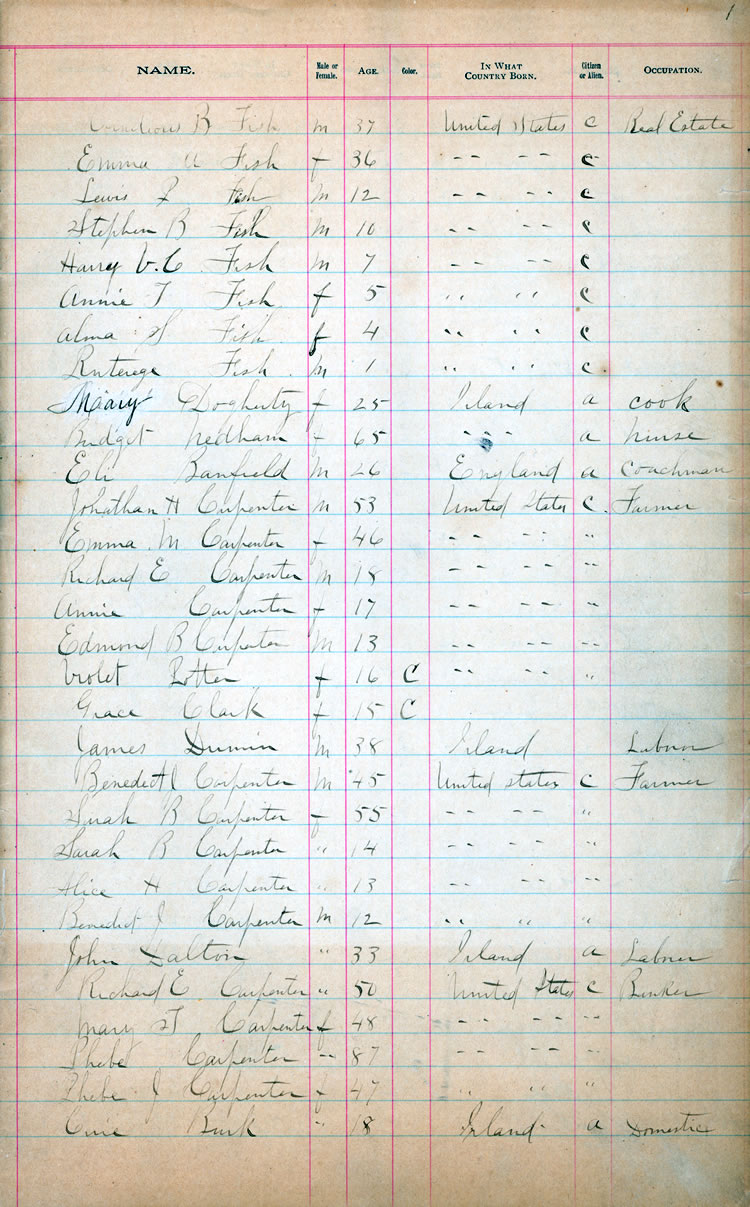 1
NAME. Male or Female. AGE. Color. IN WHAT COUNTRY BORN. Citizen or Alien. OCCUPATION.
B Fish m 37 United States C Real Estate
Emma A Fish f 36 -- -- C
Lewis J Fish m 12 -- -- C
Stephen B Fish m 10 -- -- C
Harry V.C. Fish m 7 -- -- C
Annie T Fish f 5 " " C
Alma S Fish f 4 " " C
Ruterege Fish m 1 " " C
Mary Dogherty f 25 Irland a cook
Bridget Nedham f 65 " " a nurse
Eli Banfield m 26 England a coachman
Johathan H Carpenter m 53 United States C. Farmer
Emma M Carpenter f 46 -- -- "
Richard E Carpenter m 18 -- -- "
Annie Carpenter f 17 -- -- "
Edmond B Carpenter m 13 -- -- --
Violet Potter f 16 C -- -- "
Grace Clark f 15 C
James m 38 Irland Labror
Benedict J Carpenter m 45 United States C Farmer
Sarah B Carpenter f 55 -- -- "
Sarah B Carpenter " 14 -- -- "
Alice H Carpenter " 13 -- -- "
Benedict J Carpenter m 12 " " "
John Dalton " 33 Irland a Labror
Richard E Carpenter " 50 United States C
Mary T Carpenter f 48 -- -- --
Phebe Carpenter -- 87 -- -- --
Phebe J Carpenter f 47 " " "
Burk " 18 Irland a Domestic